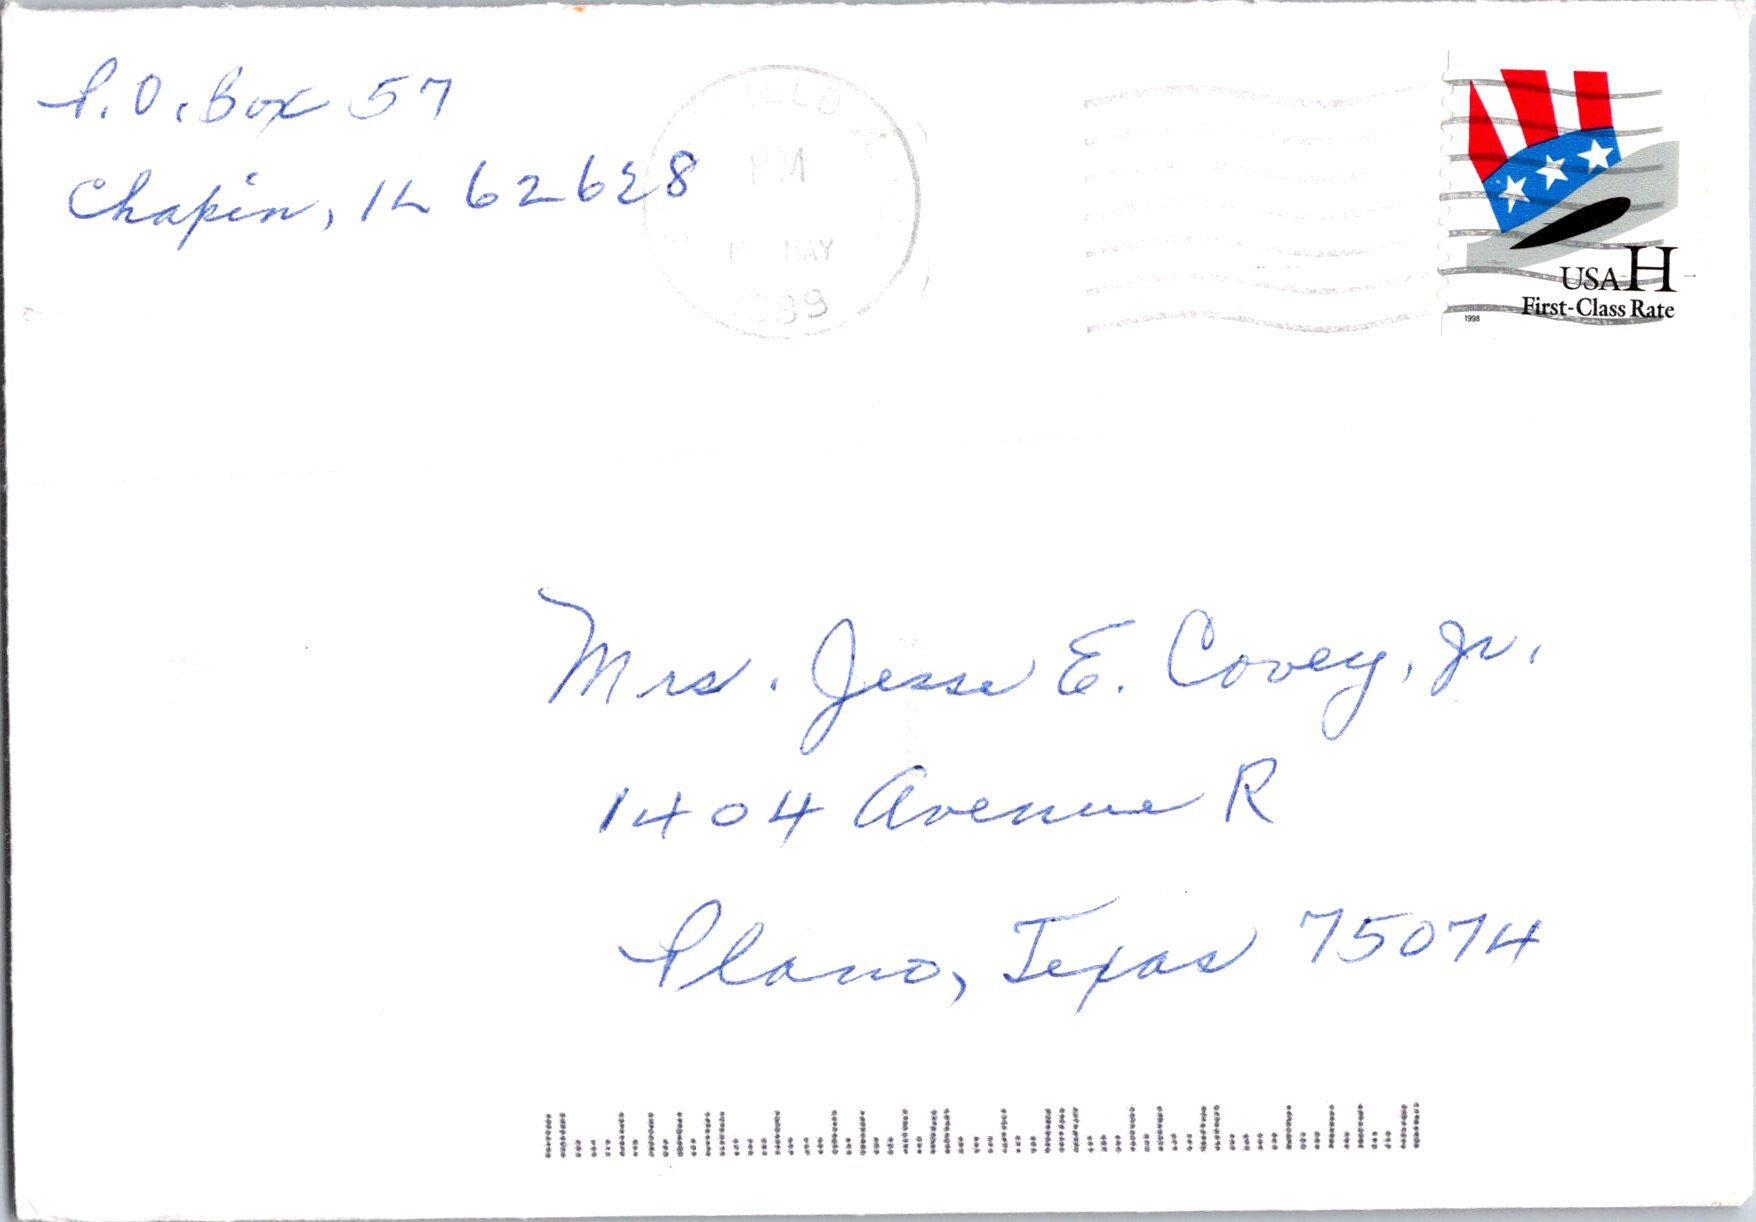 P.O. Box 57
Chapin, IL 62628
PM
MAY
USA H
First-Class Rate
1998
Mrs. Jesse E. Covey, Jr.
1404 Avenue R
Plano, Texas 75074